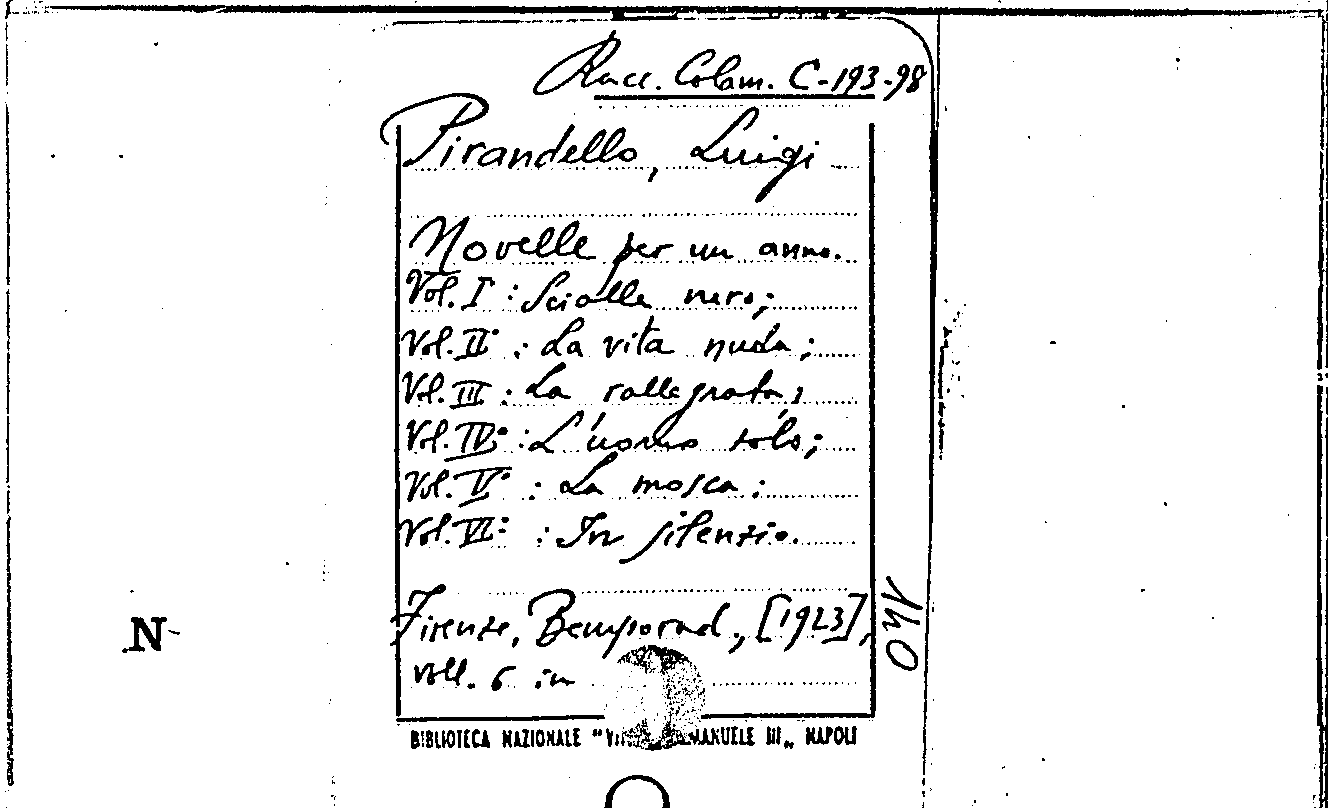 Racc. Colam. C-193-98
Pirandello, Luigi
Novelle per un anno.
Vol. I°: Scialle nero;
Vol. II°: La vita nuda;
Vol. III: La rallegrata;
Vol. IV°: L'uomo solo;
Vol. V°: La mosca;
Vol. VI°: In silenzio.
Firenze, Bemporad, [1923],
voll. 6 in
BIBLIOTECA NAZIONALE "MANUELE III„ NAPOLI
N